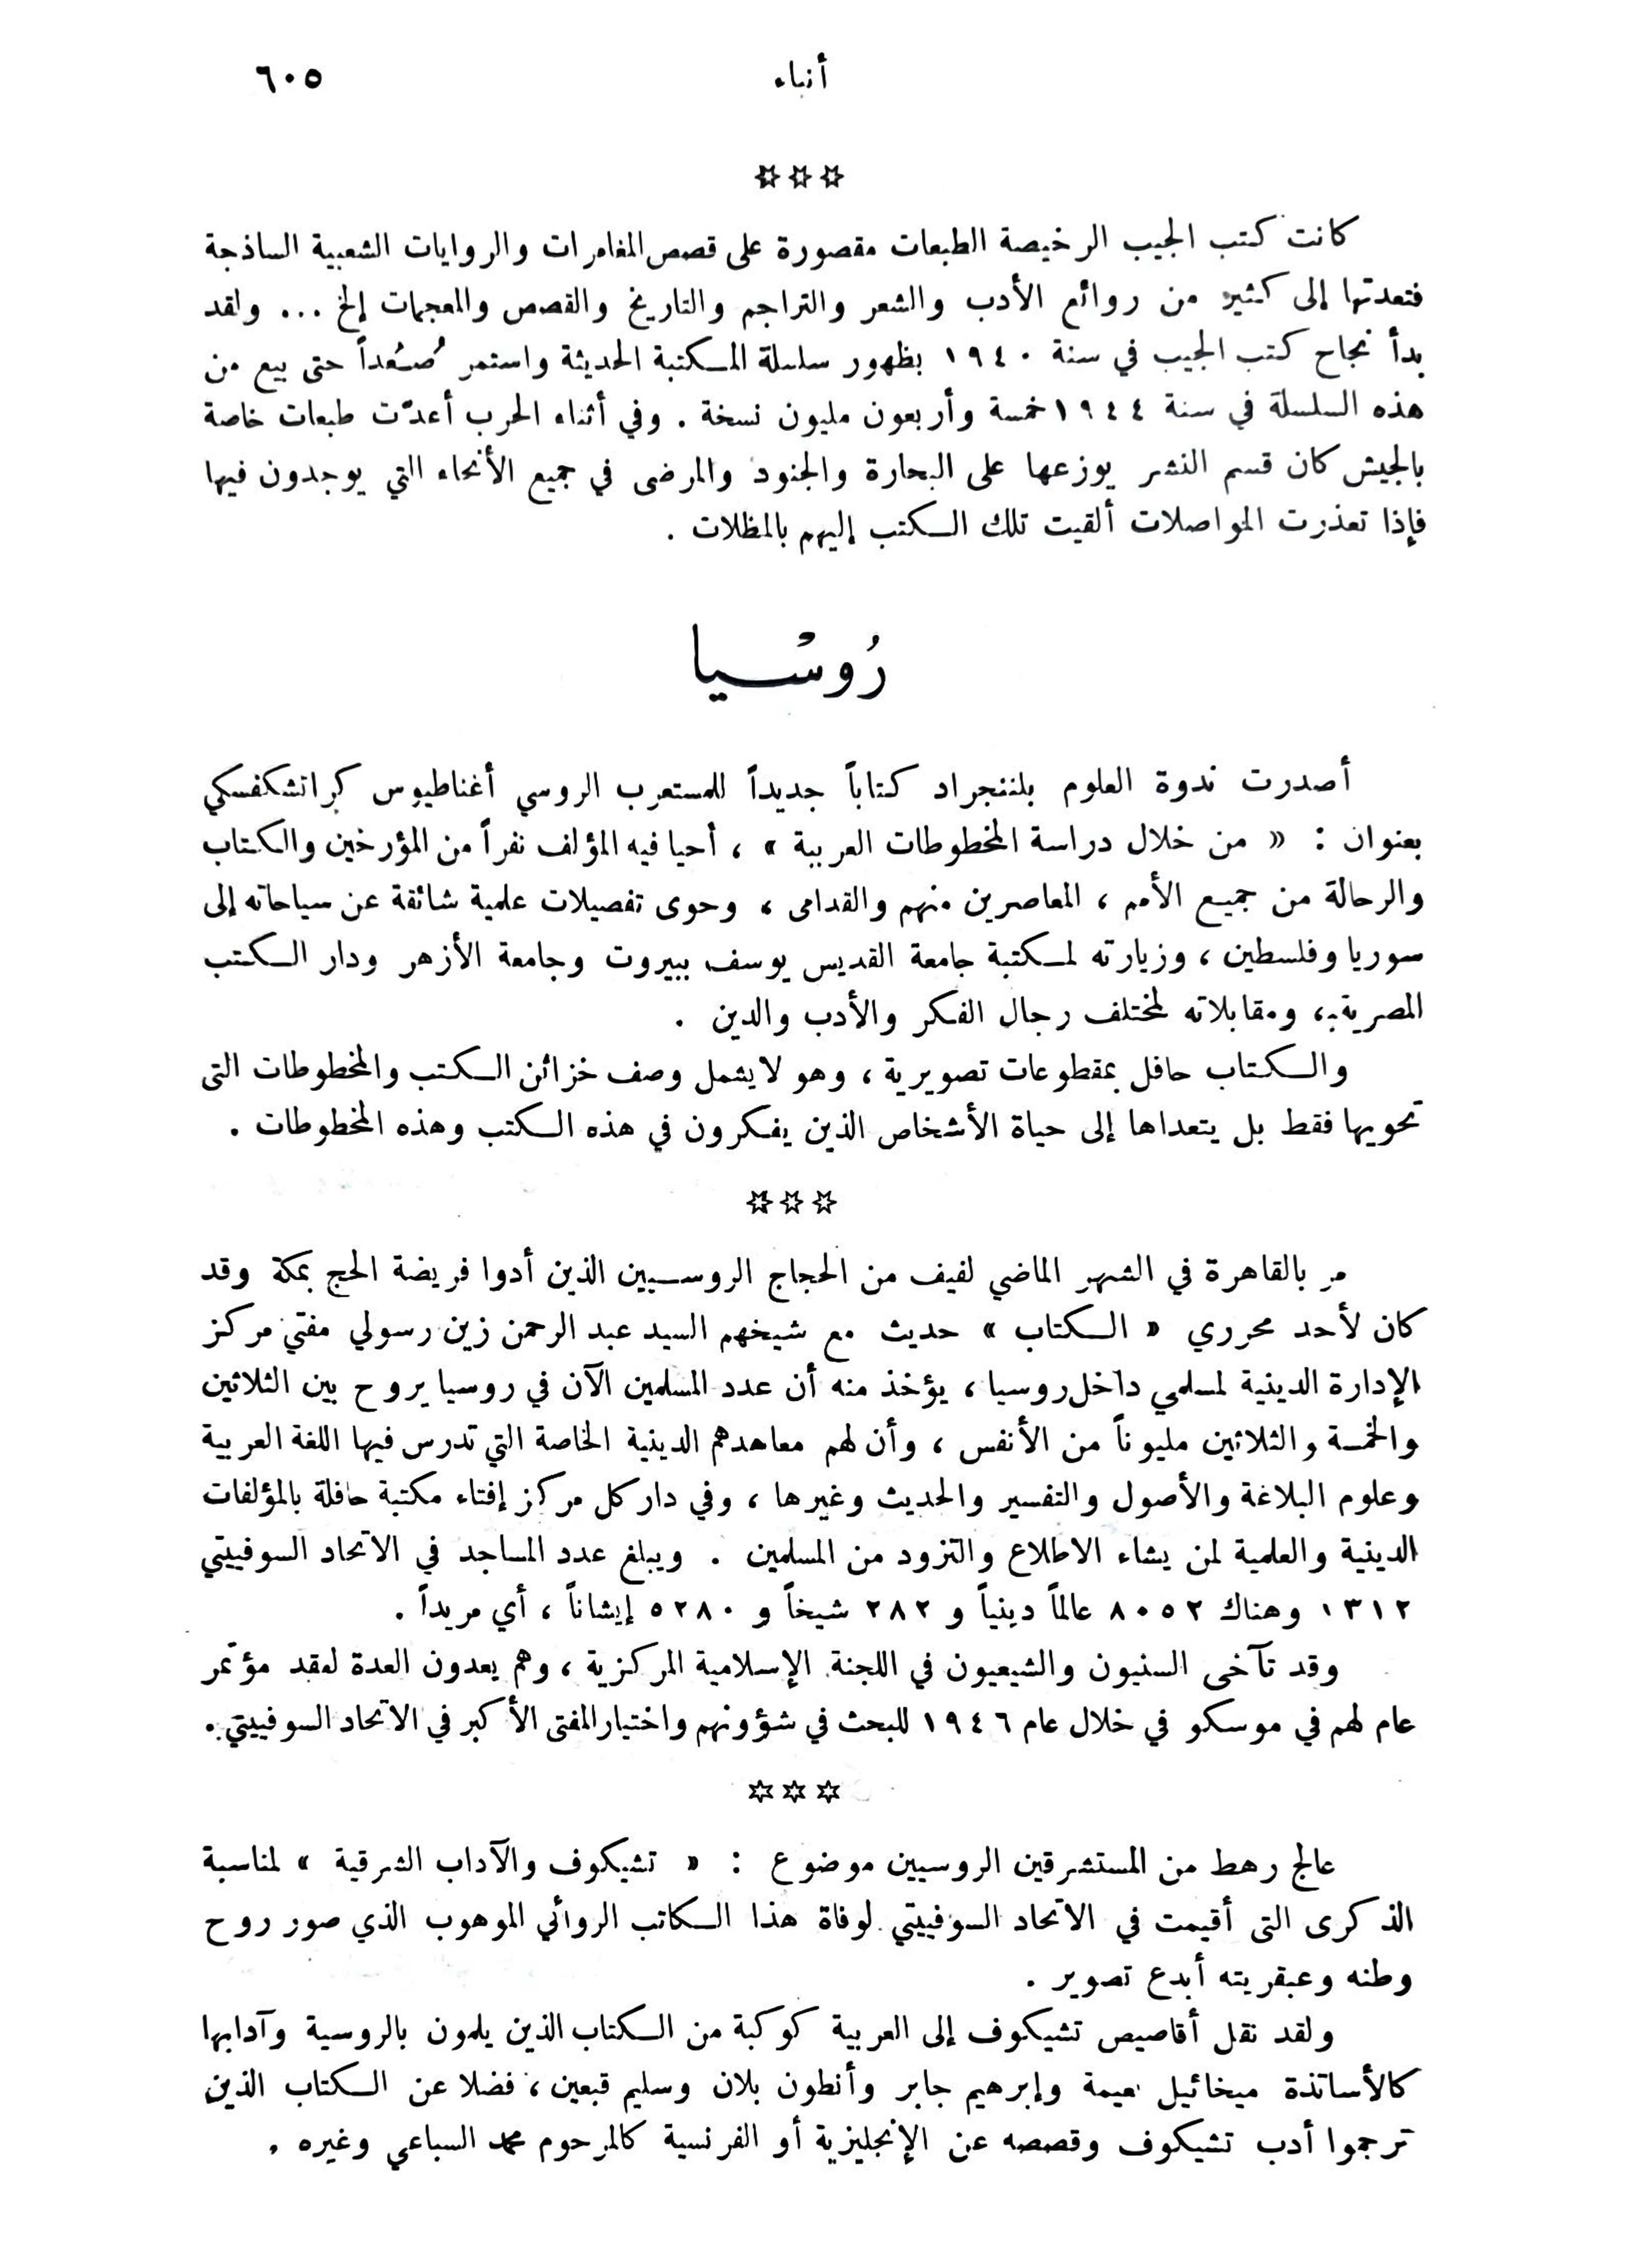 أنباء ٦٠٥
☆☆☆
كانت كتب الجيب الرخيصة الطبعات مقصورة على قصص المغامرات والروايات الشعبية الساذجة
فتعدتها إلى كثير من روائع الأدب والشعر والتراجم والتاريخ والقصص والمعجمات إلخ ... ولقد
بدأ نجاح كتب الجيب في سنة ١٩٤٠ بظهور سلسلة المكتبة الحديثة واستمر صُعُداً حتى بيع من
هذه السلسلة في سنة ١٩٤٤ خمسة وأربعون مليون نسخة . وفي أثناء الحرب أعدّت طبعات خاصة
بالجيش كان قسم النشر يوزعها على البحارة والجنود والمرضى في جميع الأنحاء التي يوجدون فيها
فإذا تعذرت المواصلات ألقيت تلك الكتب إليهم بالمظلات .
رُوسْيا
أصدرت ندوة العلوم بلننجراد كتاباً جديداً للمستعرب الروسي أغناطيوس كراتشكفسكي
بعنوان : « من خلال دراسة المخطوطات العربية » ، أحيا فيه المؤلف نفراً من المؤرخين والكتاب
والرحالة من جميع الأمم ، المعاصرين منهم والقدامى ، وحوى تفصيلات علمية شائقة عن سياحاته إلى
سوريا وفلسطين ، وزيارته لمكتبة جامعة القديس يوسف ببيروت وجامعة الأزهر ودار الكتب
المصرية ، ومقابلاته لمختلف رجال الفكر والأدب والدين .
والكتاب حافل بمقطوعات تصويرية ، وهو لا يشمل وصف خزائن الكتب والمخطوطات التى
تحويها فقط بل يتعداها إلى حياة الأشخاص الذين يفكرون في هذه الكتب وهذه المخطوطات .
☆☆☆
مر بالقاهرة في الشهر الماضي لفيف من الحجاج الروسيين الذين أدوا فريضة الحج بمكة وقد
كان لأحد محرري « الكتاب » حديث مع شيخهم السيد عبد الرحمن زين رسولي مفتي مركز
الإدارة الدينية لمسلمي داخل روسيا ، يؤخذ منه أن عدد المسلمين الآن في روسيا يروح بين الثلاثين
والخمسة والثلاثين مليوناً من الأنفس ، وأن لهم معاهدهم الدينية الخاصة التي تدرس فيها اللغة العربية
وعلوم البلاغة والأصول والتفسير والحديث وغيرها ، وفي دار كل مركز إفتاء مكتبة حافلة بالمؤلفات
الدينية والعلمية لمن يشاء الاطلاع والتزود من المسلمين . ويبلغ عدد المساجد في الاتحاد السوفييتي
١٣١٢ وهناك ٨٠٥٢ عالماً دينياً و ٢٨٢ شيخاً و ٥٢٨٠ إيشاناً ، أي مريداً .
وقد تآخى السنيون والشيعيون في اللجنة الإسلامية المركزية ، وهم يعدون العدة لعقد مؤتمر
عام لهم في موسكو في خلال عام ١٩٤٦ للبحث في شؤونهم واختيار المفتى الأكبر في الاتحاد السوفييتي .
☆☆☆
عالج رهط من المستشرقين الروسيين موضوع : « تشيكوف والآداب الشرقية » لمناسبة
الذكرى التى أقيمت في الاتحاد السوفييتي لوفاة هذا الكاتب الروائي الموهوب الذي صور روح
وطنه وعبقريته أبدع تصوير .
ولقد نقل أقاصيص تشيكوف إلى العربية كوكبة من الكتاب الذين يلمون بالروسية وآدابها
كالأساتذة ميخائيل نعيمة وإبرهيم جابر وأنطون بلان وسليم قبعين ، فضلا عن الكتاب الذين
ترجموا أدب تشيكوف وقصصه عن الإنجليزية أو الفرنسية كالمرحوم محمد السباعي وغيره .